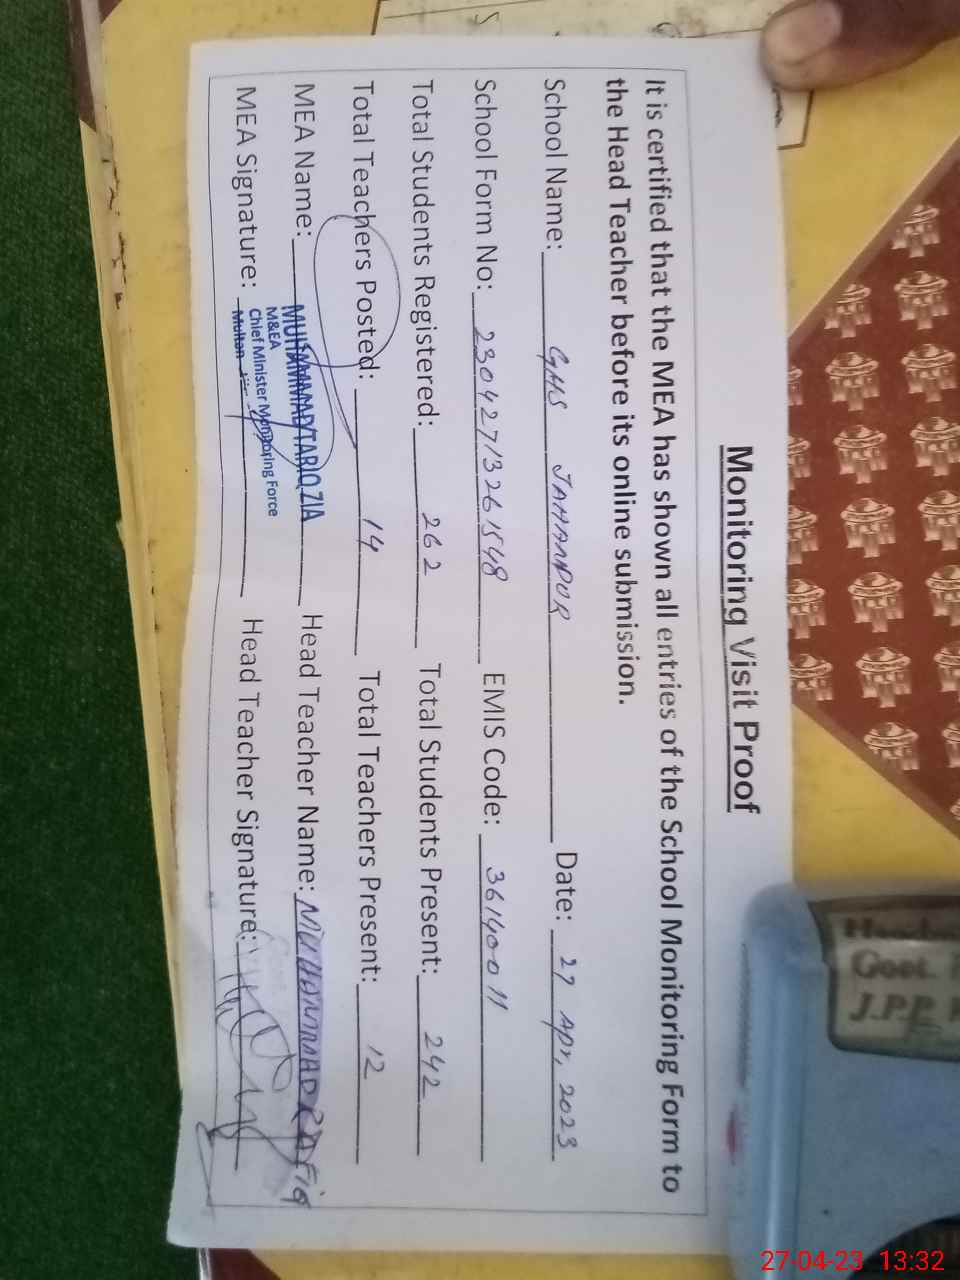 Monitoring Visit Proof
It is certified that the MEA has shown all entries of the School Monitoring Form to
the Head Teacher before its online submission.
School Name: GHS JAHANPUR Date: 27 Apr, 2023
School Form No: 23042713261548 EMIS Code: 36140011
Total Students Registered: 262 Total Students Present: 242
Total Teachers Posted: 14 Total Teachers Present: 12
MEA Name: MUHAMMAD TARIQ ZIA Head Teacher Name: MUHAMMAD RAFIQ
M&EA
Chief Minister Monitoring Force
Multan
MEA Signature: Head Teacher Signature:
Govt.
J.P.P
27-04-23 13:32